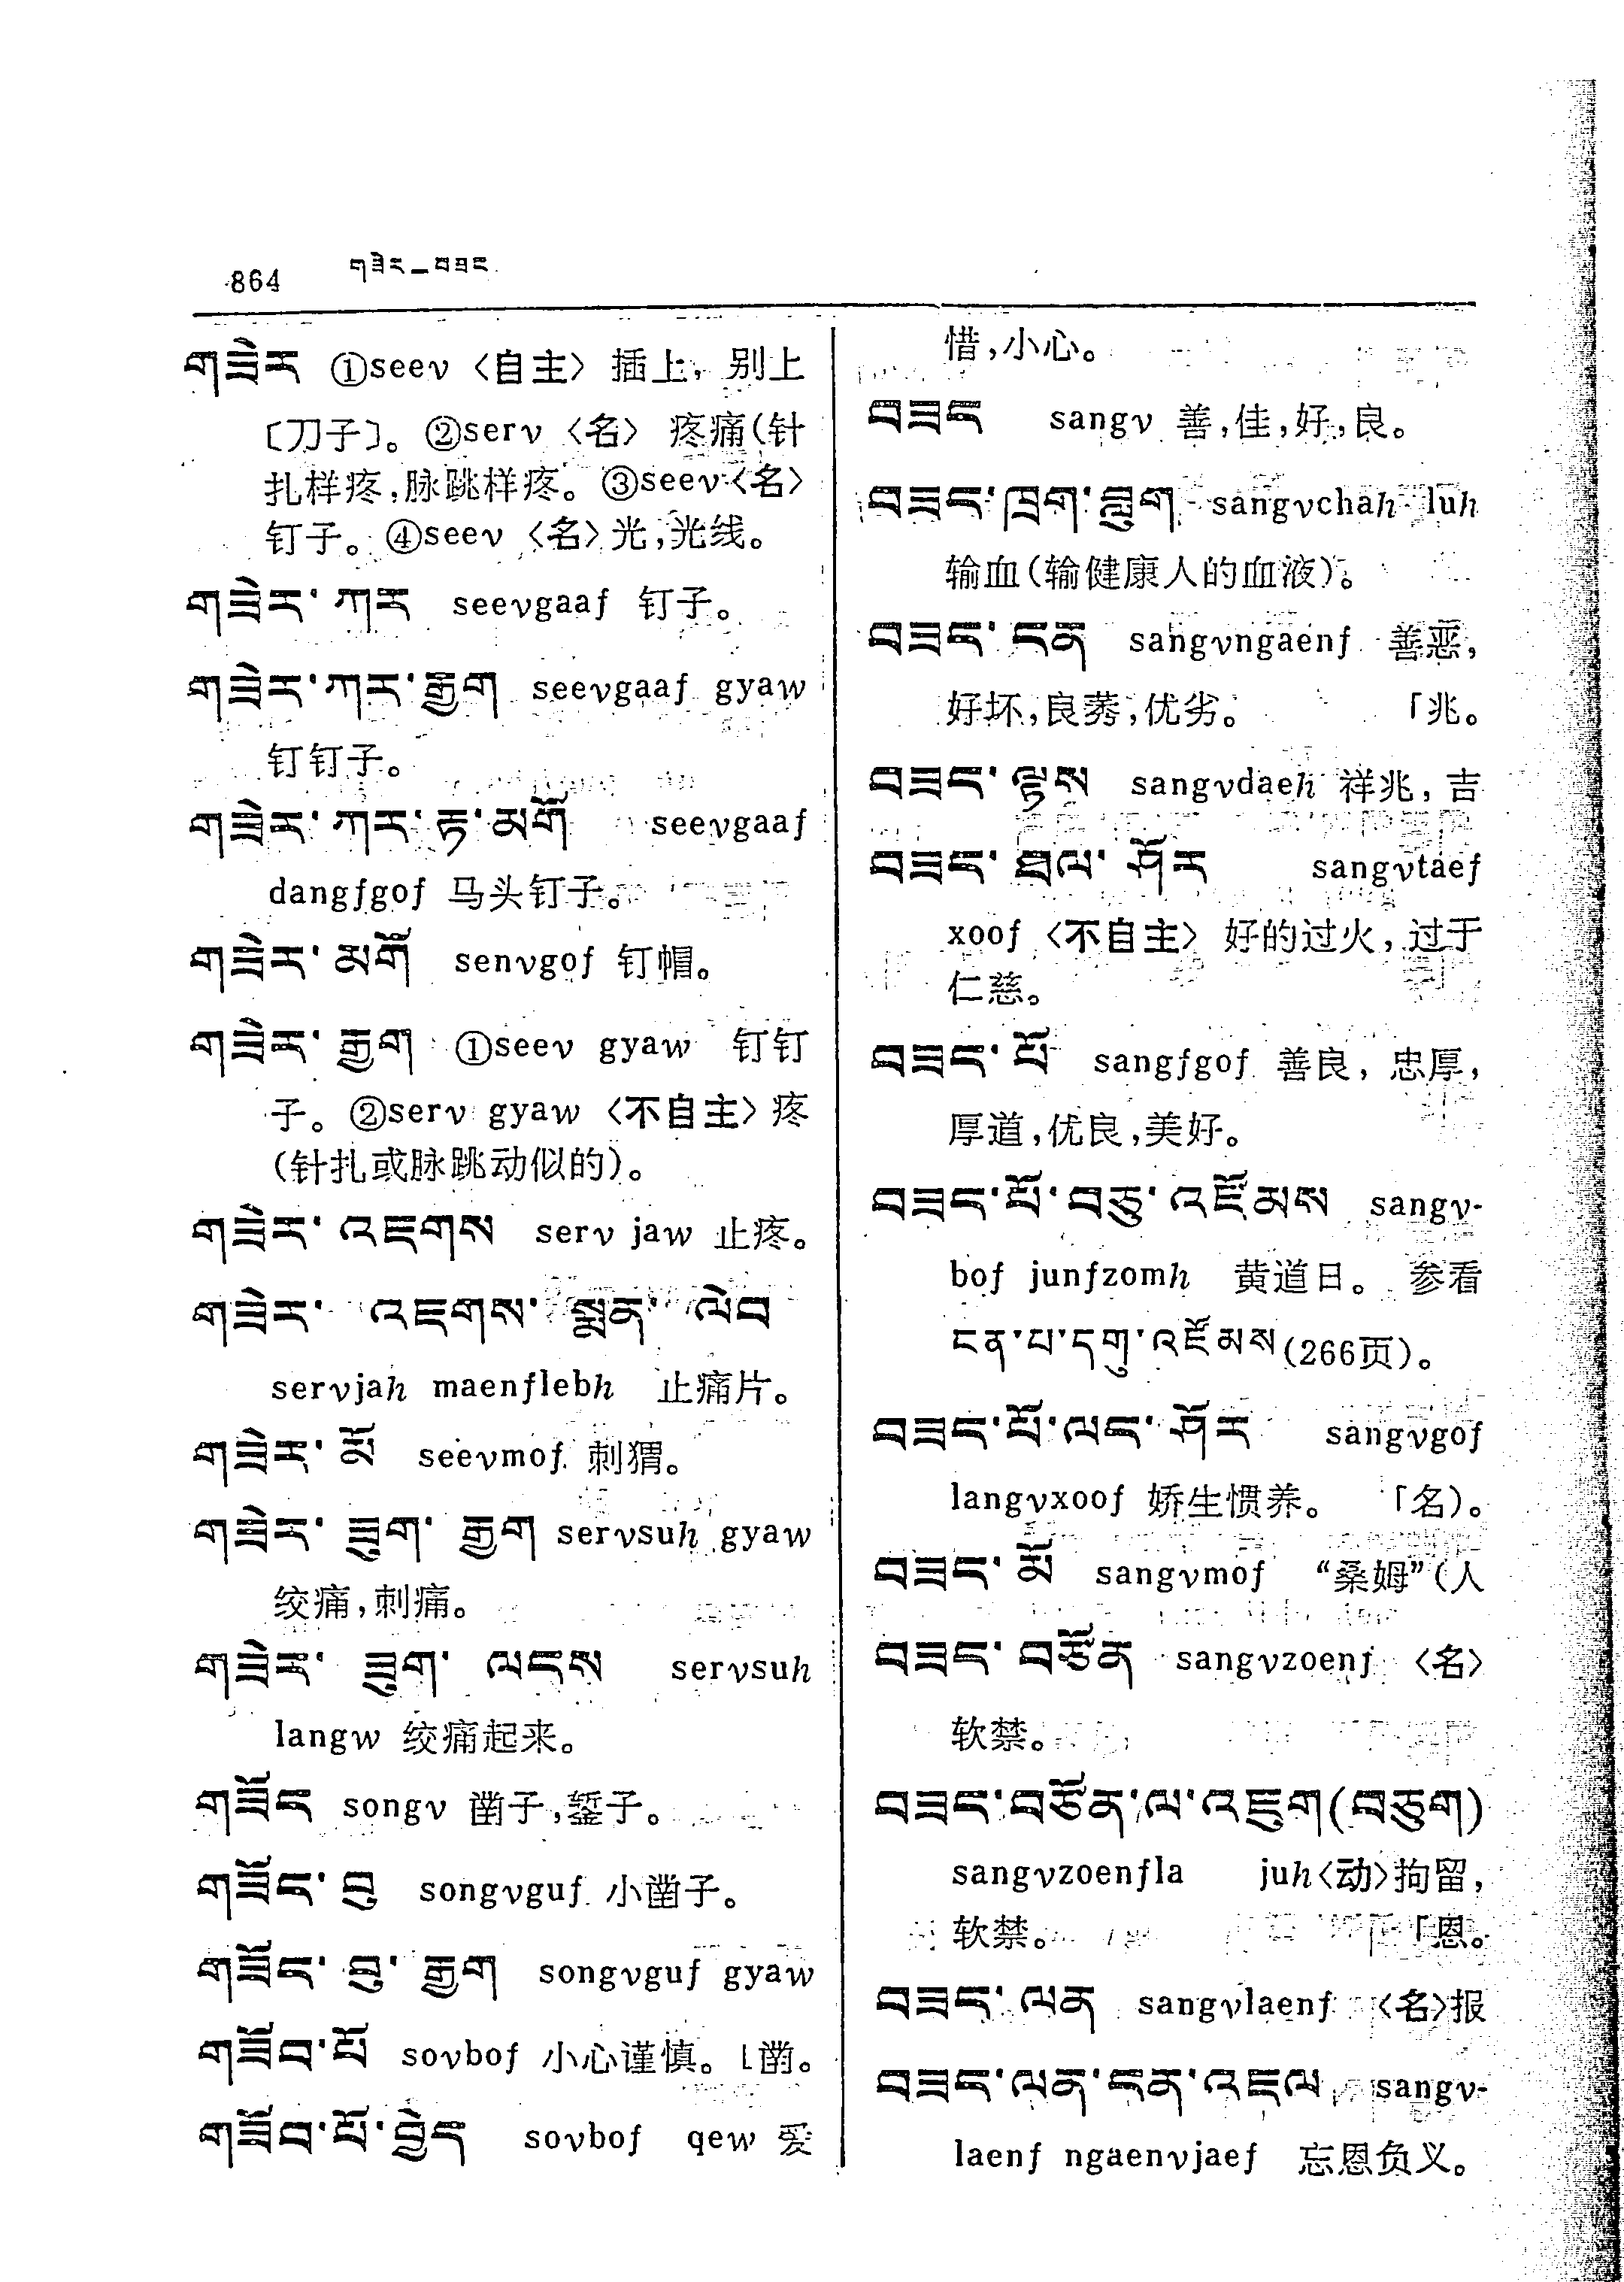 864 གཟེར—བཟང
གཟེར ①seev 〈自主〉 插上，别上
〔刀子〕。②serv 〈名〉 疼痛(针
扎样疼,脉跳样疼。③seev〈名〉
钉子。④seev 〈名〉光,光线。
གཟེར་ཀར seevgaaf 钉子。
གཟེར་ཀར་རྒྱག seevgaaf gyaw
钉钉子。
གཟེར་ཀར་རྟ་མགོ seevgaaf
dangfgof 马头钉子。
གཟེར་མགོ senvgof 钉帽。
གཟེར་རྒྱག ①seev gyaw 钉钉
子。②serv gyaw 〈不自主〉疼
(针扎或脉跳动似的)。
གཟེར་འཇགས serv jaw 止疼。
གཟེར་ འཇགས་ སྨན་ ལེབ
servjah maenflebh 止痛片。
གཟེར་མོ seevmof 刺猬。
གཟེར་ ཟུག་ རྒྱག servsuh gyaw
绞痛,刺痛。
གཟེར་ ཟུག་ ལངས servsuh
langw 绞痛起来。
གཟོང songv 凿子,錾子。
གཟོང་བུ songvguf 小凿子。
གཟོང་ བུ་ རྒྱག songvguf gyaw
གཟོབ་པོ sovbof 小心谨慎。⌊凿。
གཟོབ་པོ་བྱེད sovbof qew 爱
惜,小心。
བཟང sangv 善,佳,好,良。
བཟང་ཁྲག་བླུག sangvchah luh
输血(输健康人的血液)。
བཟང་ངན sangvngaenf 善恶,
好坏,良莠,优劣。 「兆。
བཟང་ལྟས sangvdaeh 祥兆，吉
བཟང་ཐལ་ཤོར sangvtaef
xoof 〈不自主〉 好的过火，过于
仁慈。
བཟང་པོ sangfgof 善良，忠厚，
厚道,优良,美好。
བཟང་པོ་བཅུ་འཛོམས sangv-
bof junfzomh 黄道日。 参看
ངན་པ་དགུ་འཛོམས(266页)。
བཟང་པོ་ལང་ཤོར sangvgof
langvxoof 娇生惯养。 「名)。
བཟང་མོ sangvmof “桑姆”(人
བཟང་བཙོན sangvzoenf 〈名〉
软禁。
བཟང་བཙོན་ལ་འཇུག(བཅུག)
sangvzoenfla juh〈动〉拘留,
软禁。 「恩。
བཟང་ལན sangvlaenf 〈名〉报
བཟང་ལན་ངན་འཇལ sangv-
laenf ngaenvjaef 忘恩负义。